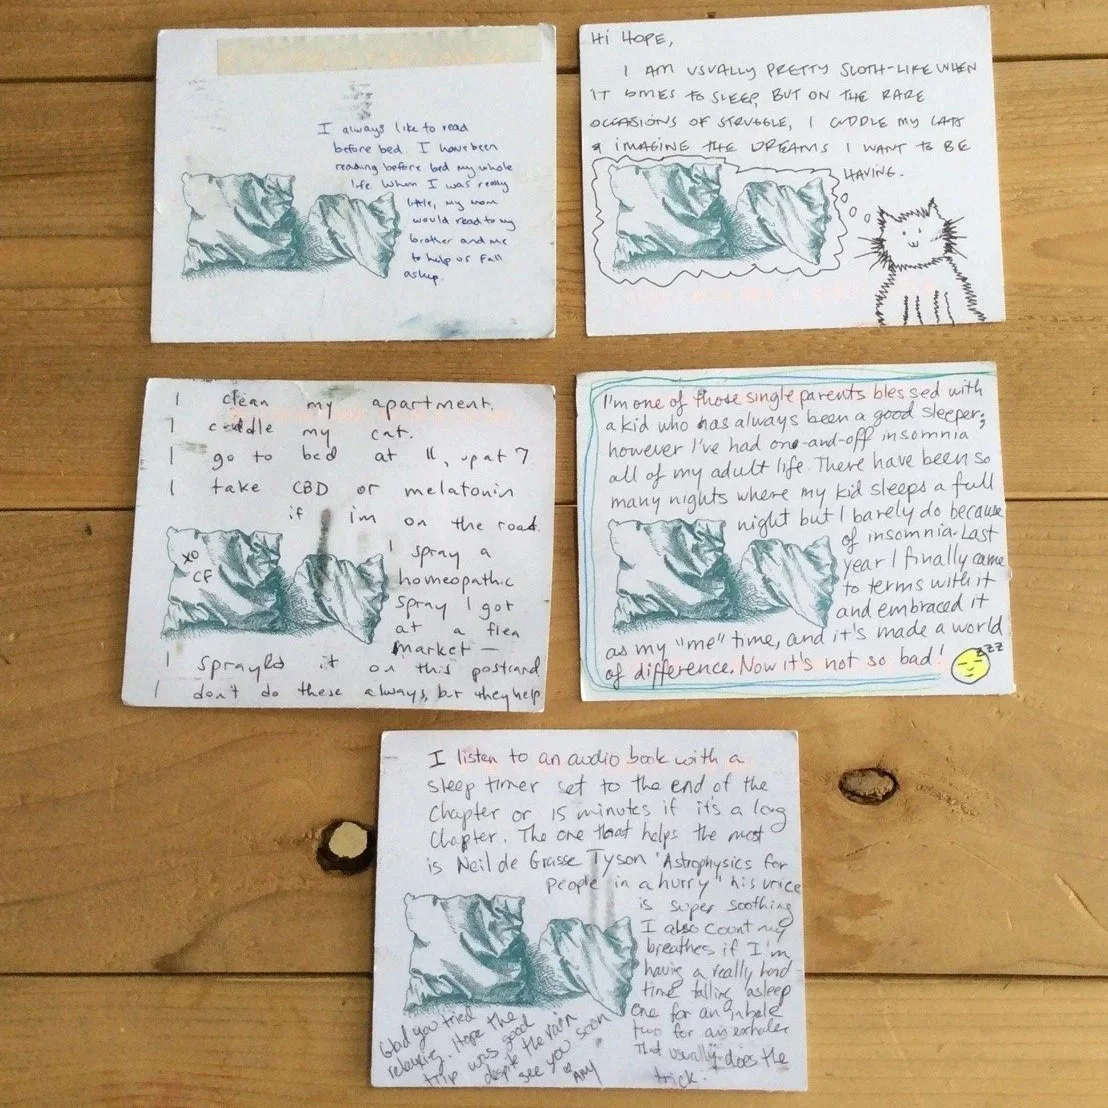 I always like to read
before bed. I have been
reading before bed my whole
life. When I was really
little, my mom
would read to my
brother and me
to help us fall
asleep.
Hi HOPE,
I AM USUALLY PRETTY SLOTH-LIKE WHEN
IT COMES TO SLEEP, BUT ON THE RARE
OCCASIONS OF STRUGGLE, I CUDDLE MY CATS
& IMAGINE THE DREAMS I WANT TO BE
HAVING.
I clean my apartment.
I cuddle my cat.
I go to bed at 11, up at 7
I take CBD or melatonin
if i'm on the road.
I spray a
homeopathic
spray I got
at a flea
market —
I sprayed it on this postcard
I don't do these always, but they help
XO
CF
I'm one of those single parents blessed with
a kid who has always been a good sleeper;
however I've had on-and-off insomnia
all of my adult life. There have been so
many nights where my kid sleeps a full
night but I barely do because
of insomnia. Last
year I finally came
to terms with it
and embraced it
as my "me" time, and it's made a world
of difference. Now it's not so bad!
zzz
I listen to an audio book with a
sleep timer set to the end of the
chapter or 15 minutes if it's a long
chapter. The one that helps the most
is Neil de Grasse Tyson "Astrophysics for
people in a hurry" his voice
is super soothing
I also count my
breathes if I'm
having a really hard
time falling asleep
one for an inhale
two for an exhale
That usually does the
trick.
Glad you tried
relaxing. Hope the
trip was good
despite the rain
see you soon
Amy